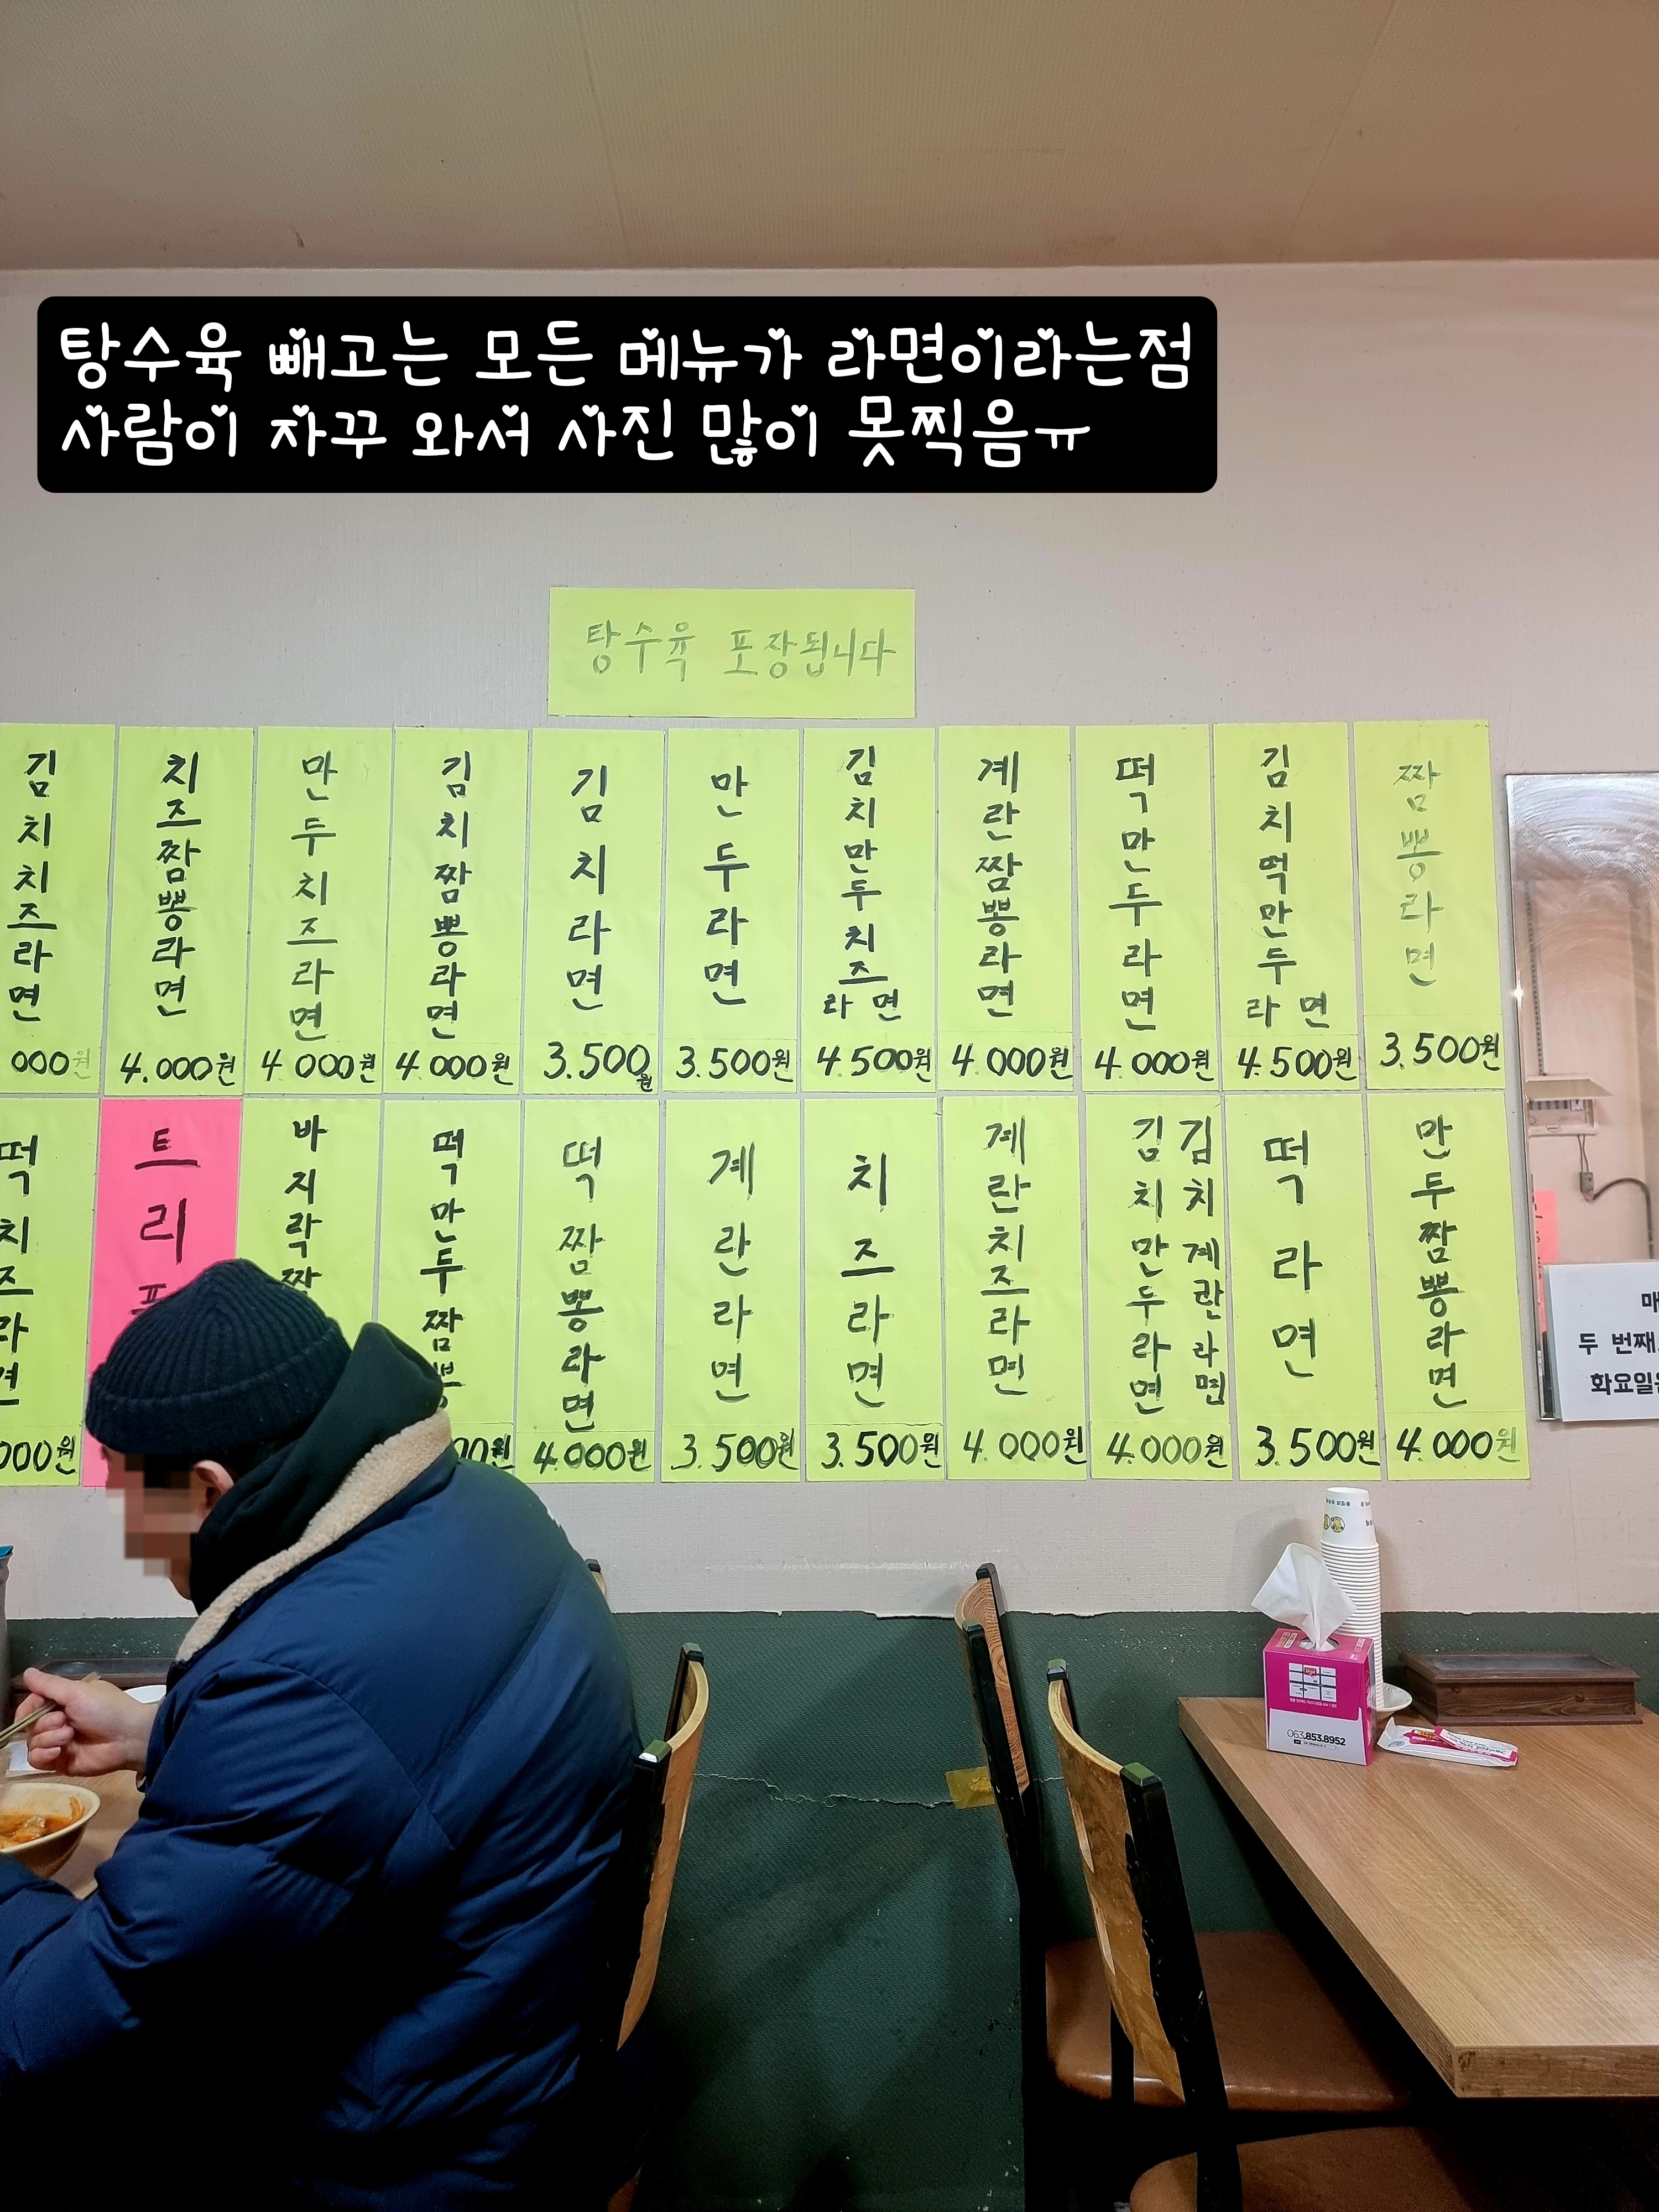 탕수육 빼고는 모든 메뉴가 라면이라는점
사람이 자꾸 와서 사진 많이 못찍음ㅠ
탕수육 포장됩니다
김치치즈라면
000원
치즈짬뽕라면
4.000원
만두치즈라면
4.000원
김치짬뽕라면
4.000원
김치라면
3.500원
만두라면
3.500원
김치만두치즈라면
4.500원
계란짬뽕라면
4.000원
떡만두라면
4.000원
김치떡만두라면
4.500원
짬뽕라면
3.500원
떡치즈라면
000원
트리
바지락짬
떡만두짬뽕
00원
떡짬뽕라면
4.000원
계란라면
3.500원
치즈라면
3.500원
계란치즈라면
4.000원
김치만두라면
김치계란라면
4.000원
떡라면
3.500원
만두짬뽕라면
4.000원
매
두 번째
화요일은
063.853.8952